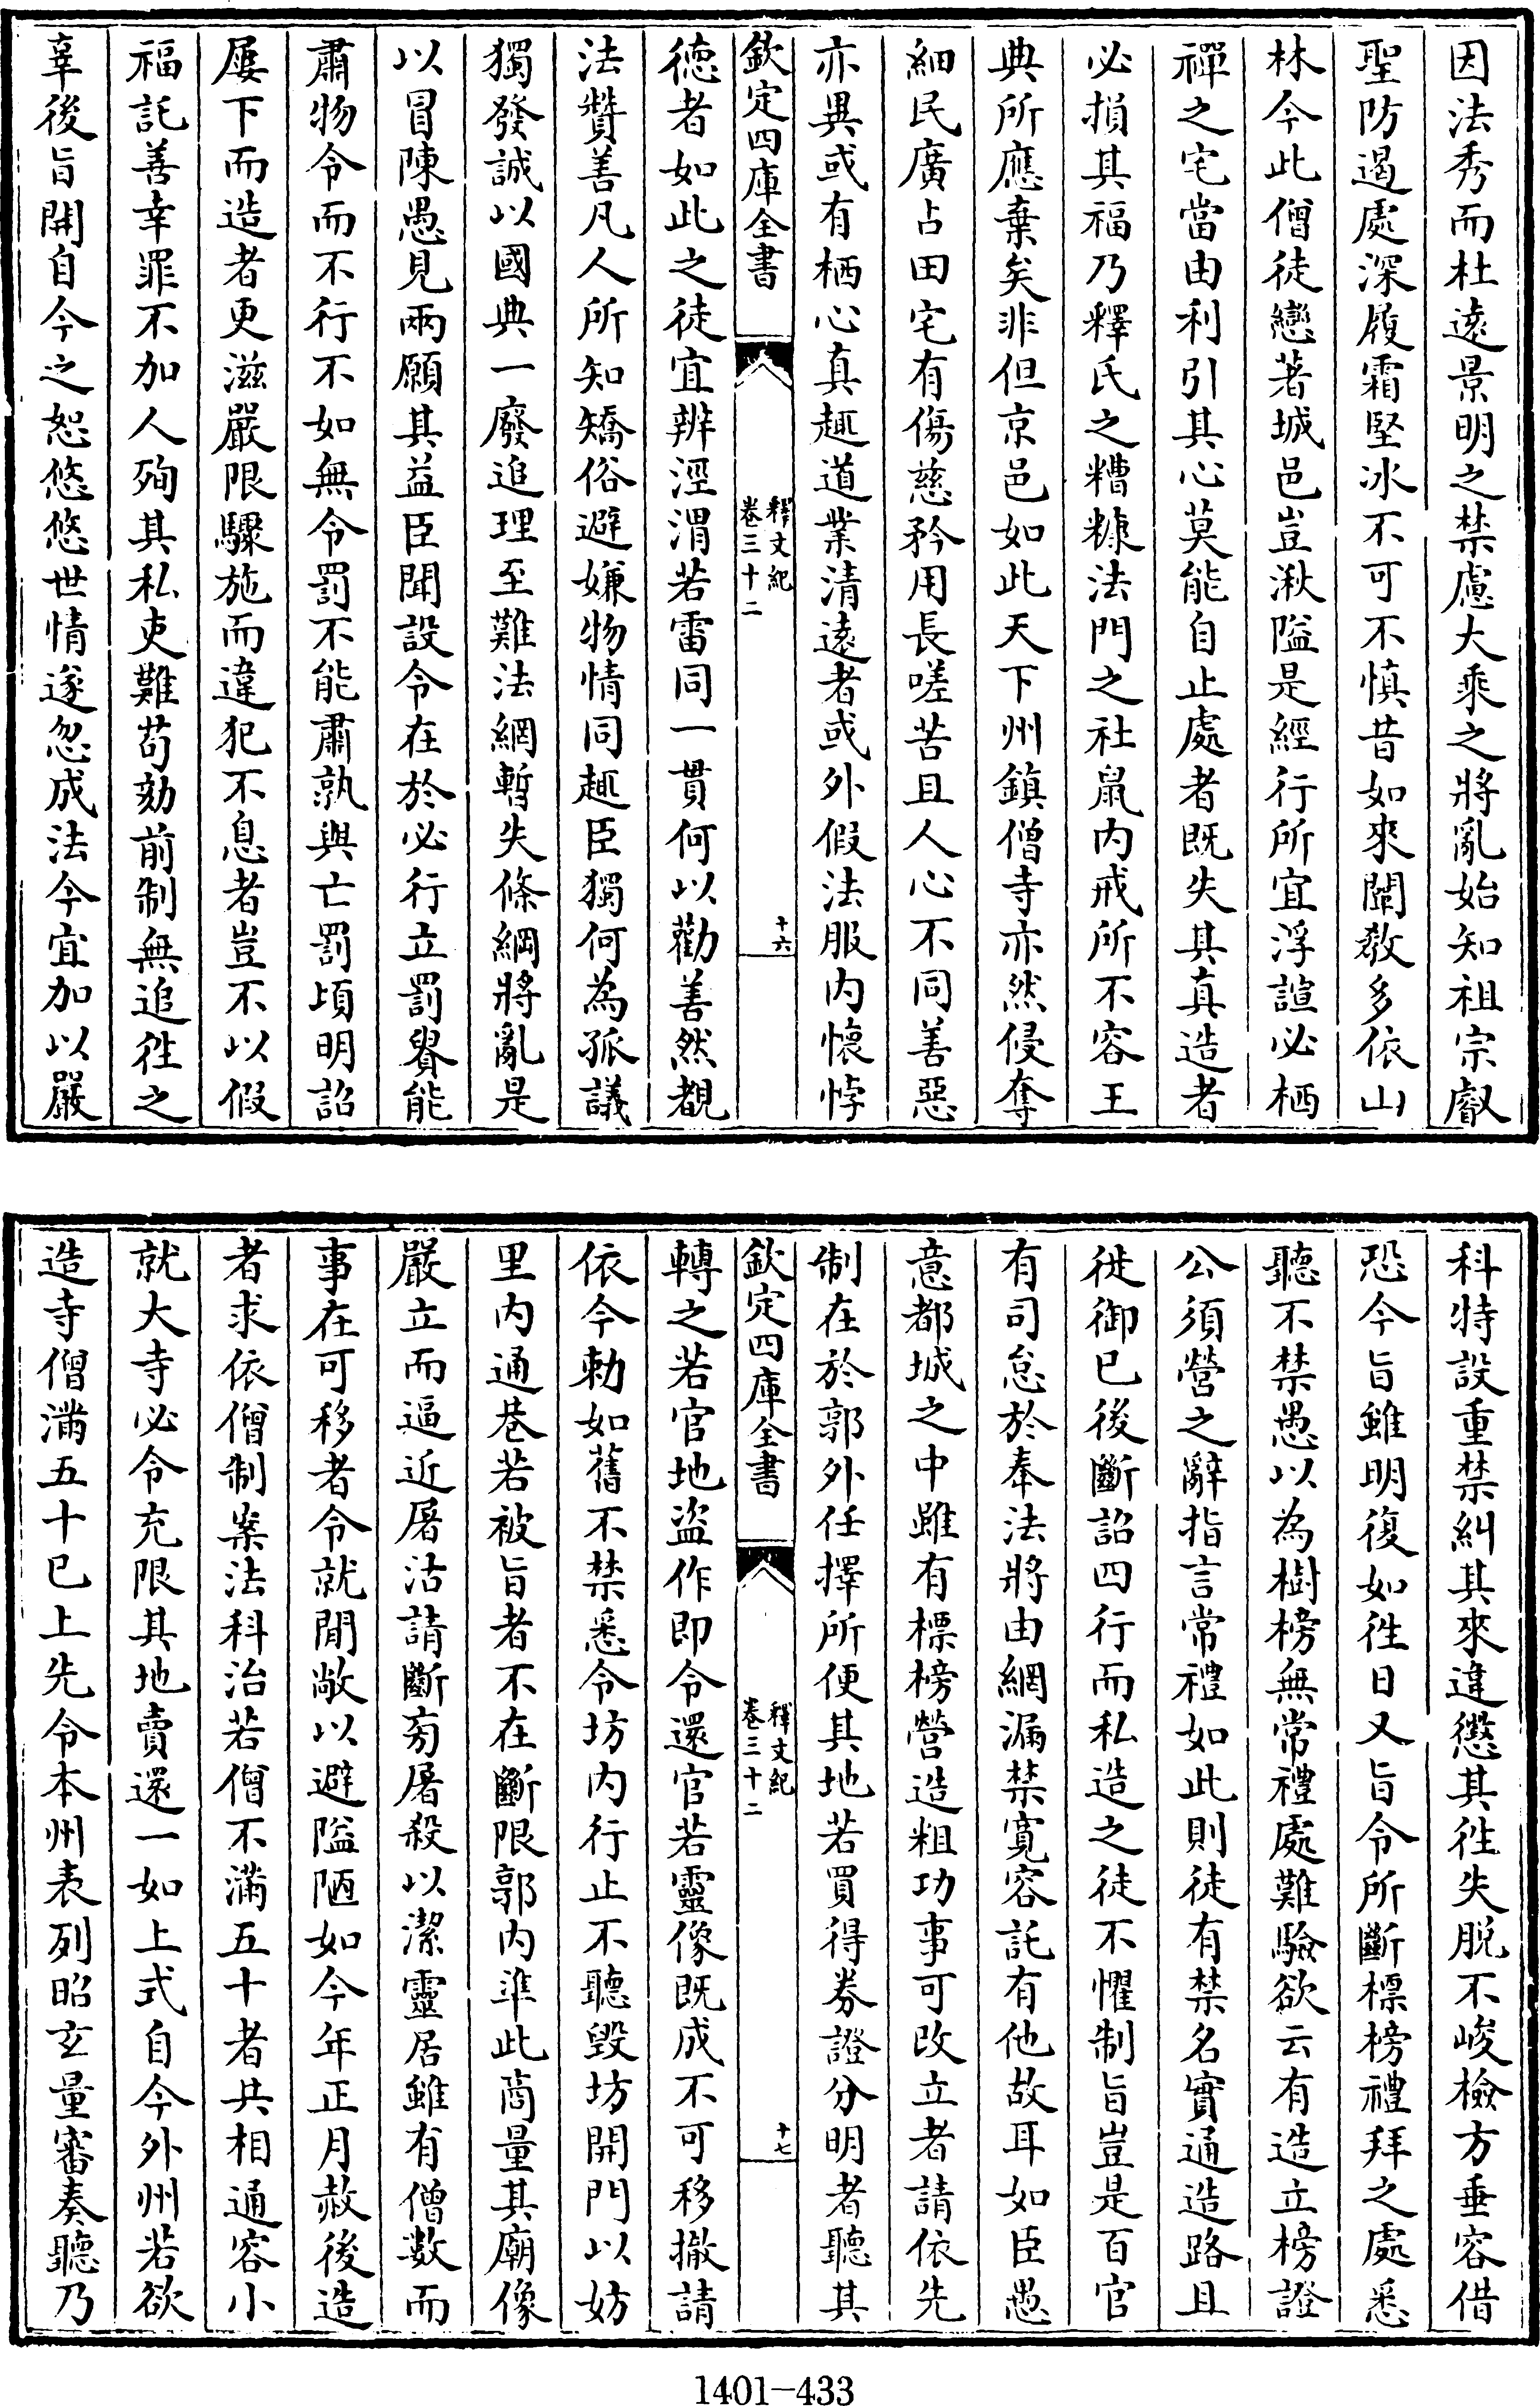 因法秀而杜逺景明之禁慮大乘之將亂始知祖宗叡
聖防遏處深履霜堅冰不可不慎昔如來闡教多依山
林今此僧徒戀著城邑豈湫隘是經行所宜浮諠必栖
禪之宅當由利引其心莫能自止處者既失其真造者
必損其福乃釋氏之糟糠法門之社鼠内戒所不容王
典所應棄矣非但京邑如此天下州鎮僧寺亦然侵奪
細民廣占田宅有傷慈矜用長嗟苦且人心不同善惡
亦異或有栖心真趣道業清遠者或外假法服内懷悖
欽定四庫全書
釋文紀
卷三十二
十六
徳者如此之徒宜辨涇渭若雷同一貫何以勸善然覩
法贊善凡人所知矯俗避嫌物情同趣臣獨何為孤議
獨發誠以國典一廢追理至難法網暫失條綱將亂是
以冒陳愚見兩願其益臣聞設令在於必行立罰貴能
肅物令而不行不如無令罰不能肅孰與亡罰頃明詔
屢下而造者更滋嚴限驟施而違犯不息者豈不以假
福託善幸罪不加人殉其私吏難苟劾前制無追往之
辜後旨開自今之恕悠悠世情遂忽成法今宜加以嚴
科特設重禁糾其來違懲其往失脱不峻檢方垂容借
恐今旨雖明復如往日又旨令所斷標榜禮拜之處悉
聽不禁愚以為樹榜無常禮處難驗欲云有造立榜證
公須營之辭指言常禮如此則徒有禁名實通造路且
徙御已後斷詔四行而私造之徒不懼制旨豈是百官
有司怠於奉法將由網漏禁寬容託有他故耳如臣愚
意都城之中雖有標榜營造粗功事可改立者請依先
制在於郭外任擇所便其地若買得劵證分明者聽其
欽定四庫全書
釋文紀
卷三十二
十七
轉之若官地盗作即令還官若靈像既成不可移撤請
依今勅如舊不禁悉令坊内行止不聽毁坊開門以妨
里内通巷若被旨者不在斷限郭内準此商量其廟像
嚴立而逼近屠沽請斷旁屠殺以潔靈居雖有僧數而
事在可移者令就閒敞以避隘陋如今年正月赦後造
者求依僧制案法科治若僧不滿五十者共相通容小
就大寺必令充限其地賣還一如上式自今外州若欲
造寺僧滿五十已上先令本州表列昭玄量審奏聽乃
1401-433